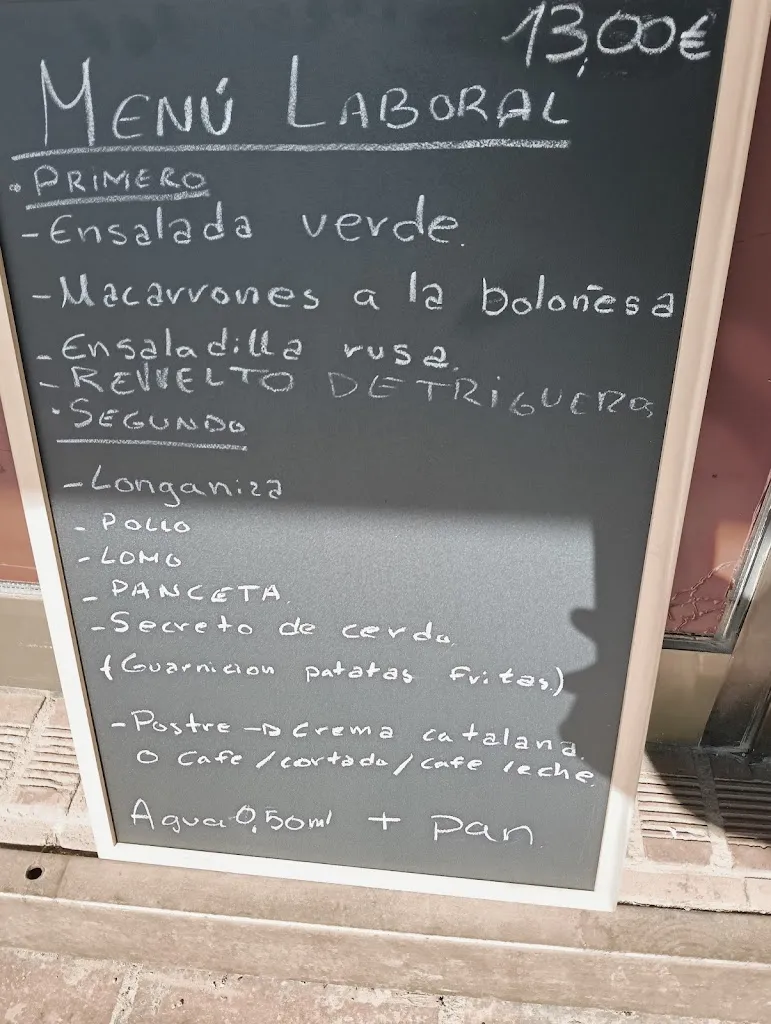 13,00€
MENÚ LABORAL
• PRIMERO
- Ensalada verde.
- Macarrones a la boloñesa
- Ensaladilla rusa.
- REVUELTO DE TRIGUEROS
• SEGUNDO
- Longaniza
- POLLO
- LOMO
- PANCETA.
- Secreto de cerdo.
(Guarnicion patatas fritas.)
- Postre → Crema catalana.
O Cafe/cortado/cafe leche.
Agua 0,50ml + pan.